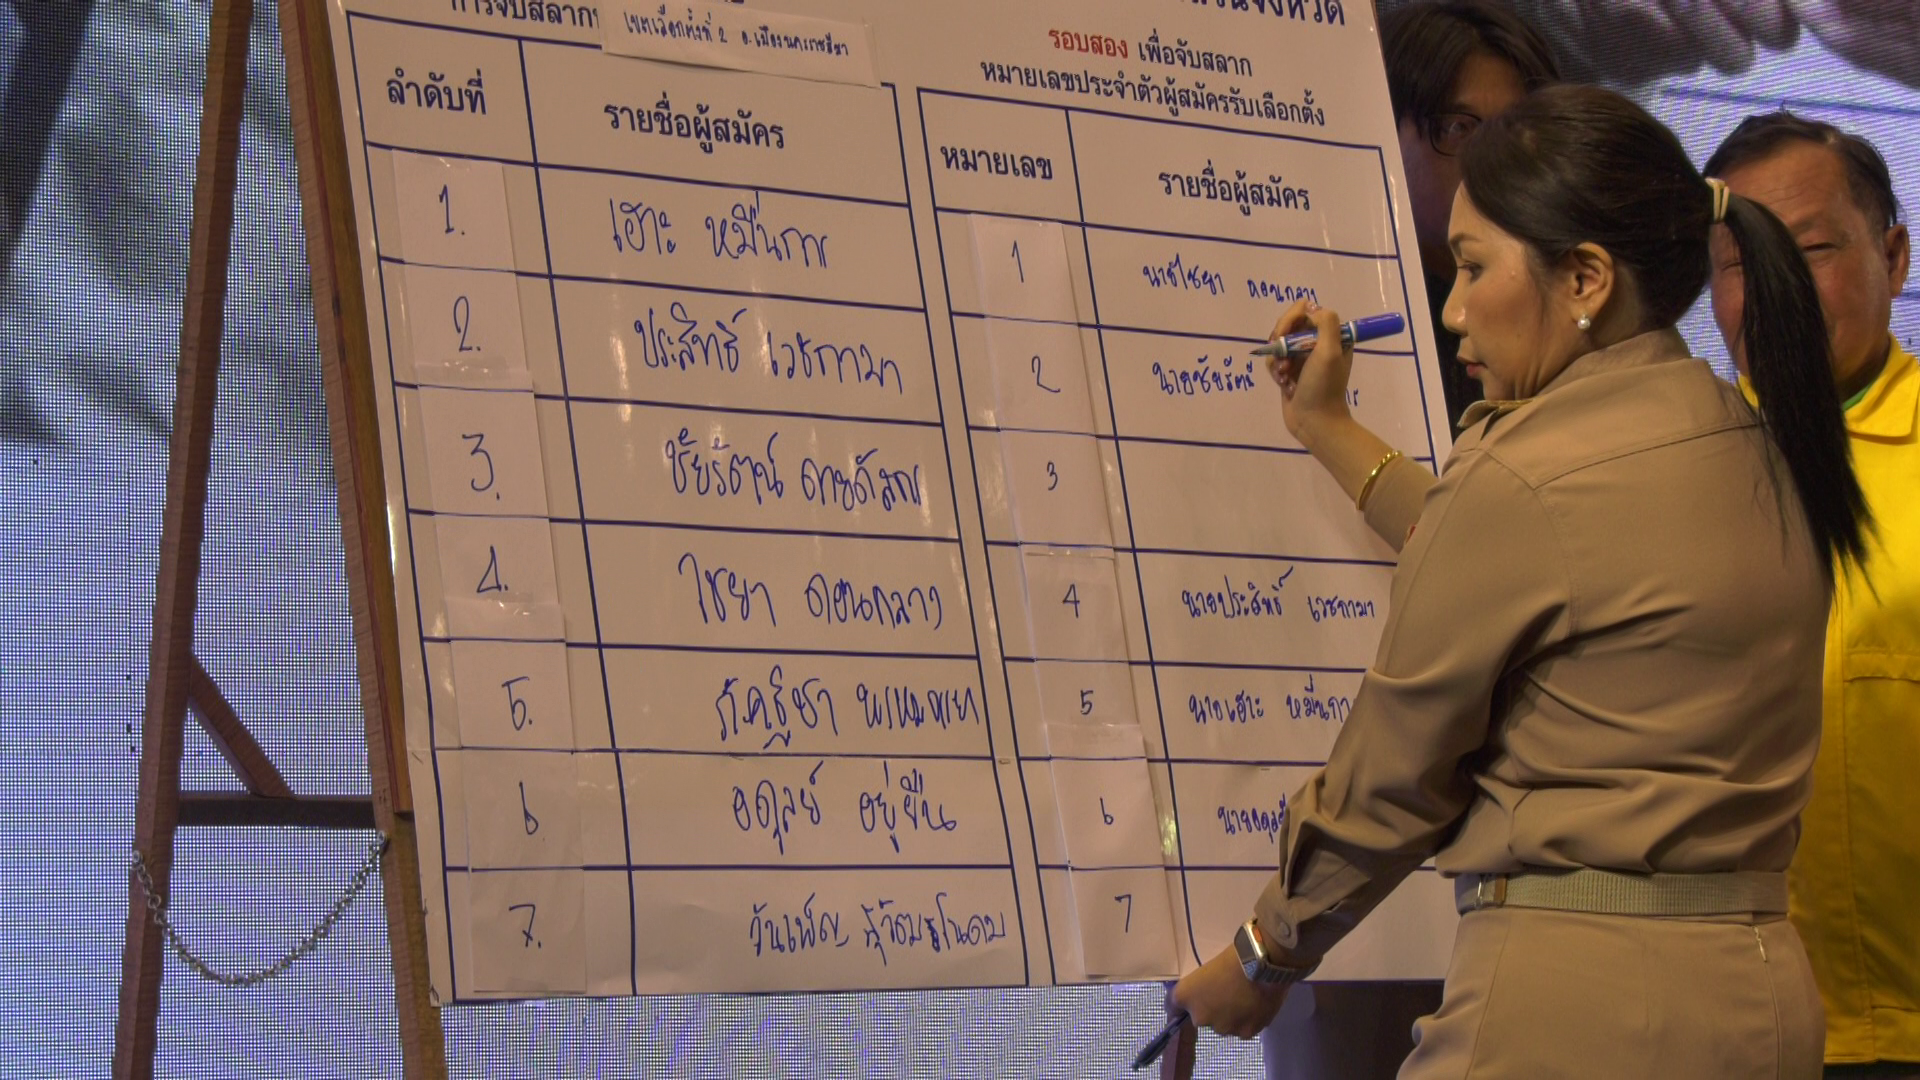 การจับสลาก
เขตเลือกตั้งที่ 2 อ.เมืองนครราชสีมา
รอบสอง เพื่อจับสลาก
หมายเลขประจำตัวผู้สมัครรับเลือกตั้ง
ลำดับที่ รายชื่อผู้สมัคร
1. เฮาะ หมื่นการ
2. ประสิทธิ์ เวชกามา
3. ชัยรัตน์
4. ไชยา ดอนกลาง
5.
6 อดุลย์ อยู่ยืน
7. วันเพ็ญ
หมายเลข รายชื่อผู้สมัคร
1 นายไชยา ดอนกลาง
2 นายชัยรัตน์
3
4 นายประสิทธิ์ เวชกามา
5 นายเฮาะ หมื่นกา
6
7